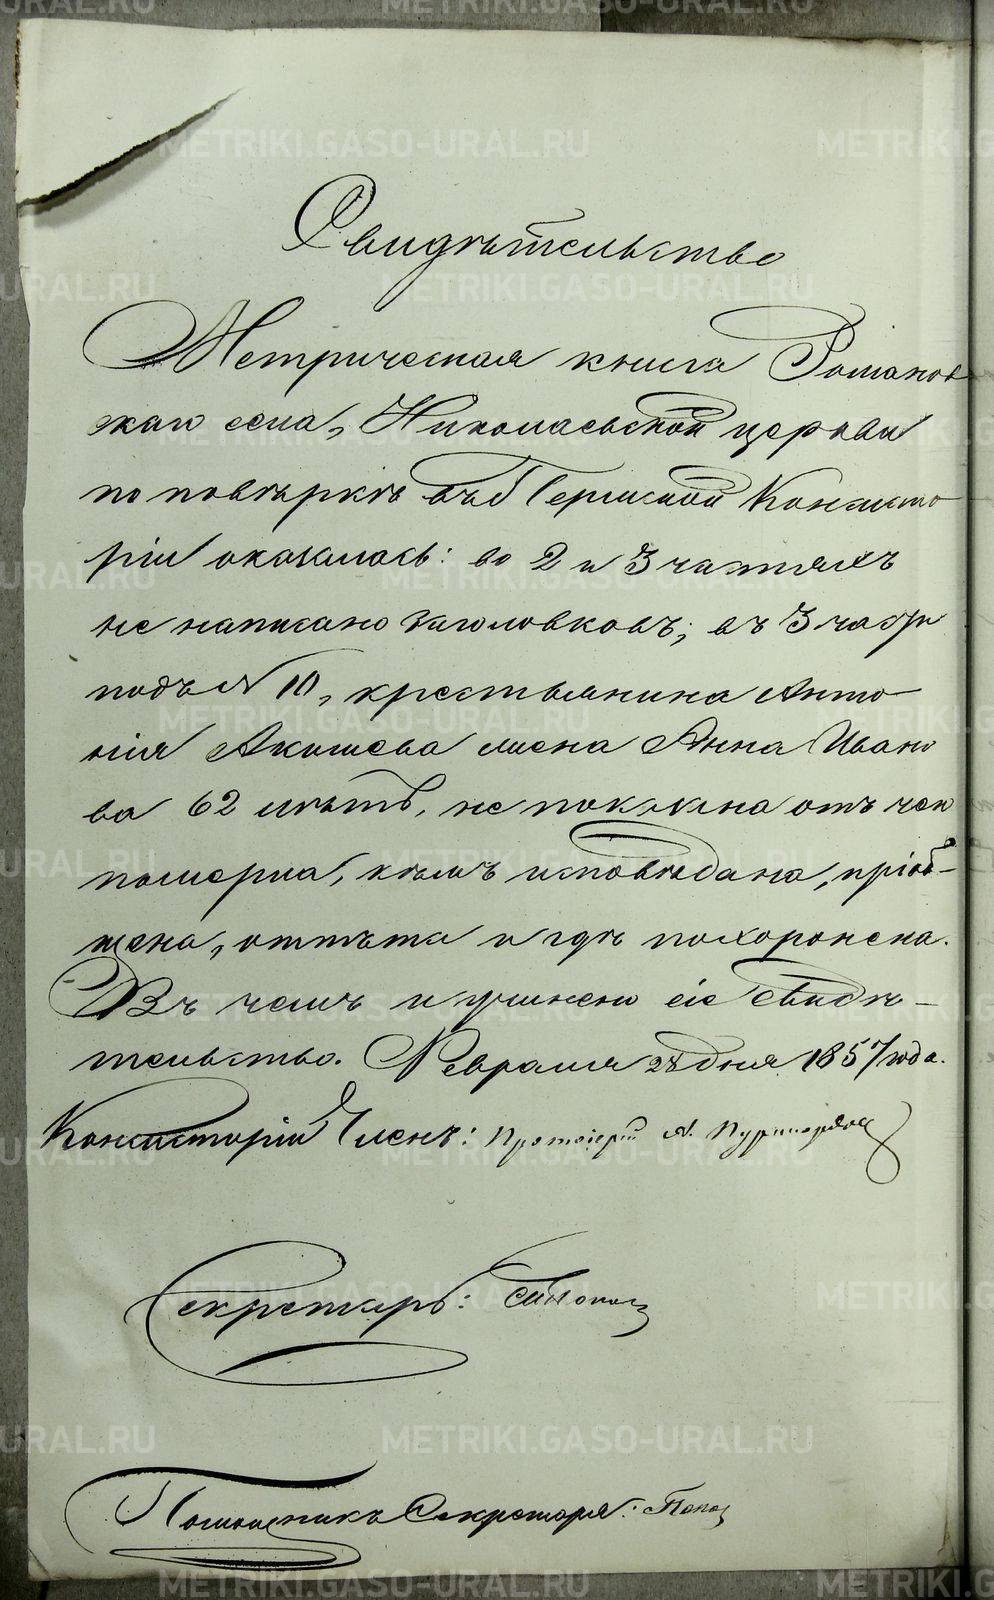 Свидѣтельство
Метрическая книга Романов
скаго села, Николаевской церкви
по повѣркѣ въ Пермской Консисто
ріи оказалось: во 2 и 3 частяхъ
не написано заголовковъ; въ 3 части
подъ № 10, крестьянина Анто
нія Акишева жена Анна Ивано
ва 62 лѣтъ, не показана отъ чего
померла, кѣмъ исповѣдана, пріоб-
щена, отпѣта и гдѣ похоронена.
Въ чемъ и учинено сіе свидѣ-
тельство. Февраля 28 дня 1857 года.
Консисторіи Членъ: Протоіерей А.
Секретарь:
Помощникъ Секретаря: Попов
METRIKI.GASO-URAL.RU